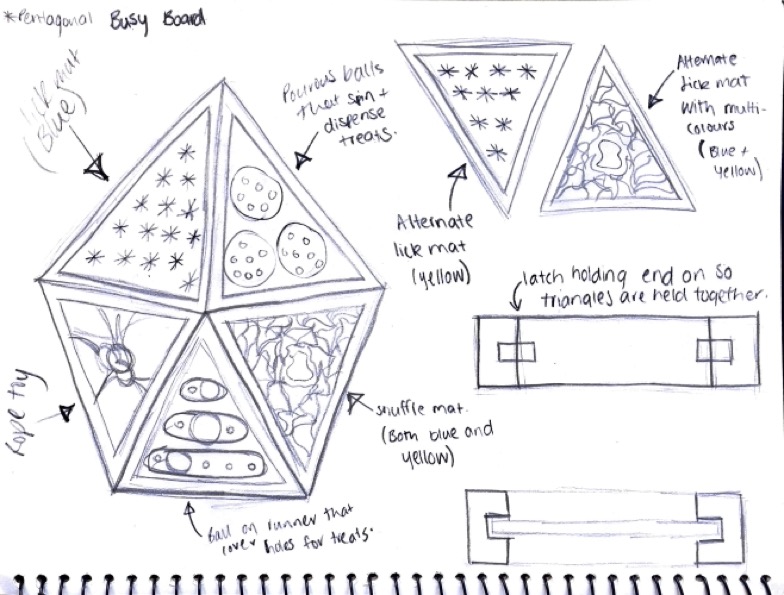 *Pentagonal Busy Board
Lick mat
(Blue)
Pourous balls
that spin +
dispense
treats.
Alternate
lick mat
(yellow)
Alternate
Lick mat
with multi-
colours
(Blue +
Yellow)
latch holding end on so
triangles are held together.
Rope toy
snuffle mat.
(Both blue and
yellow)
Ball on runner that
cover holes for treats.